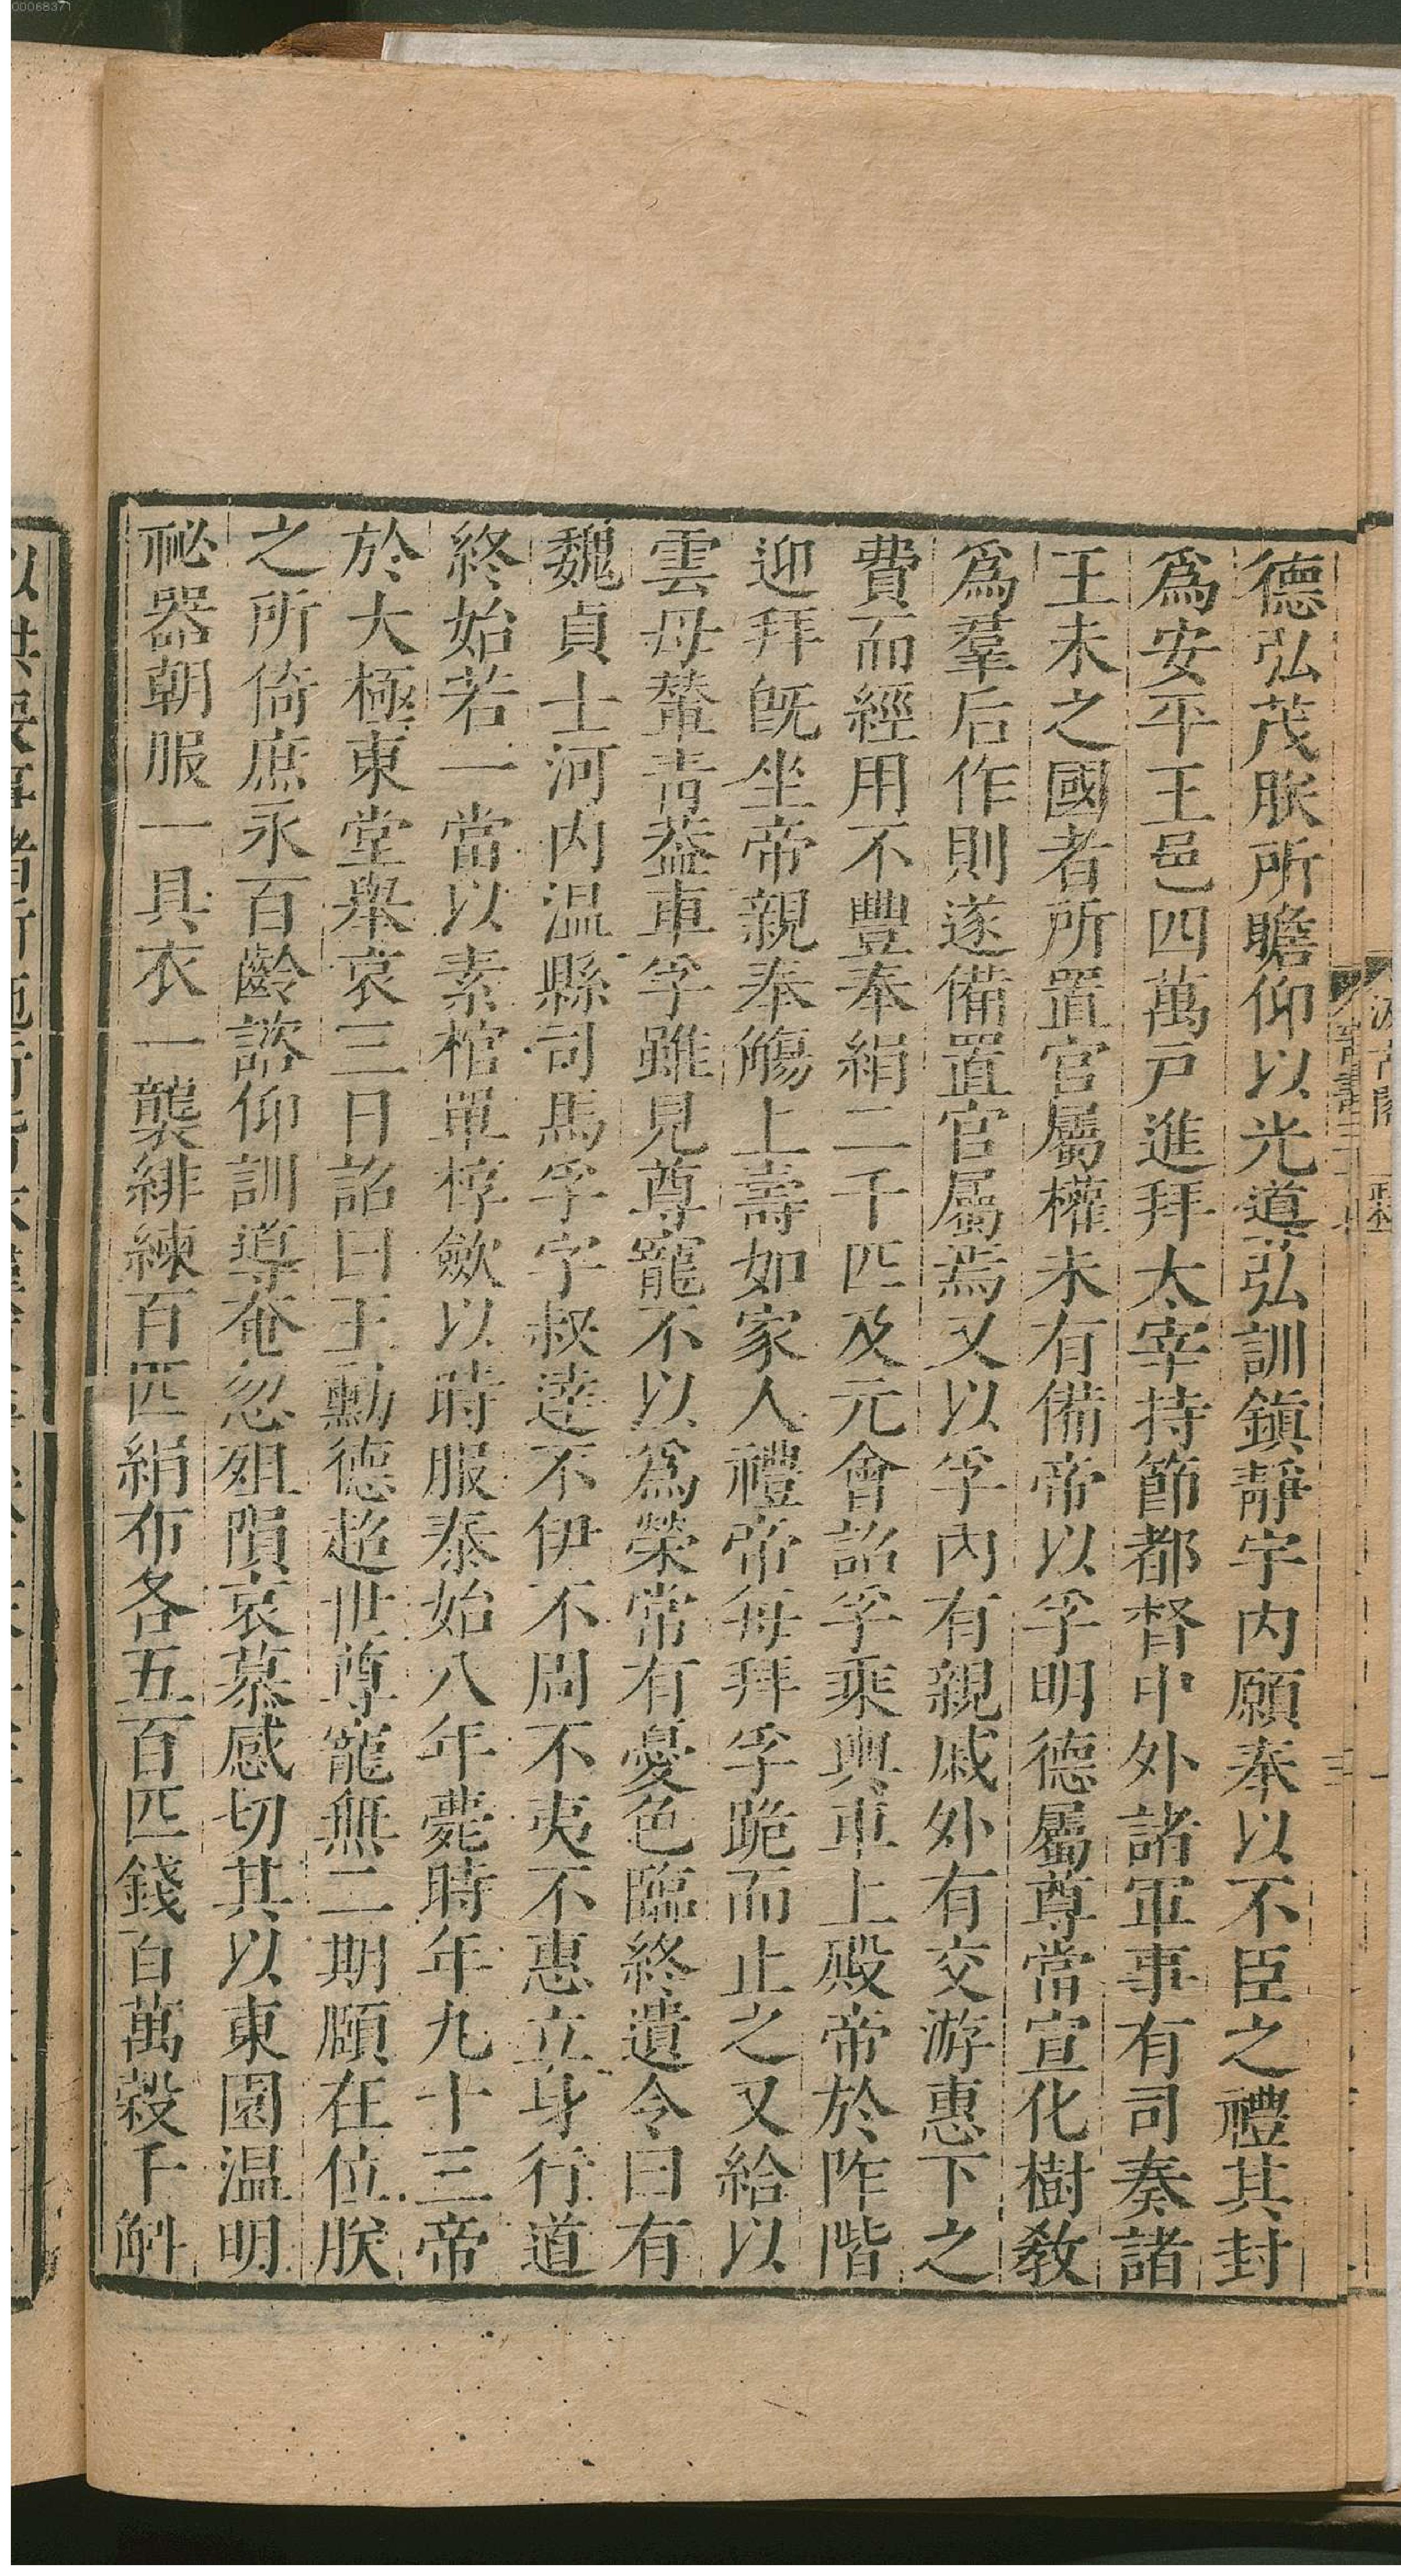 00068371
德弘茂朕所瞻仰以光道弘訓鎭靜宇内願奉以不臣之禮其封
爲安平王邑四萬戸進拜太宰持節都督中外諸軍事有司奏諸
王未之國者所置官屬權未有備帝以孚明德屬尊當宣化樹敎
爲羣后作則遂備置官屬焉又以孚内有親戚外有交游惠下之
費而經用不豐奉絹二千匹及元會詔孚乘輿車上殿帝於阼階
迎拜旣坐帝親奉觴上壽如家人禮帝每拜孚跪而止之又給以
雲母輦靑葢車孚雖見尊寵不以爲榮常有憂色臨終遺令曰有
魏貞士河内温縣司馬孚字叔達不伊不周不夷不惠立身行道
終始若一當以素棺單椁斂以時服泰始八年薨時年九十三帝
於太極東堂舉哀三日詔曰王勳德超世尊寵無二期頤在位朕
之所倚庶永百齡諮仰訓導奄忽殂隕哀慕感切其以東園温明
祕器朝服一具衣一襲緋練百匹絹布各五百匹錢百萬穀千斛